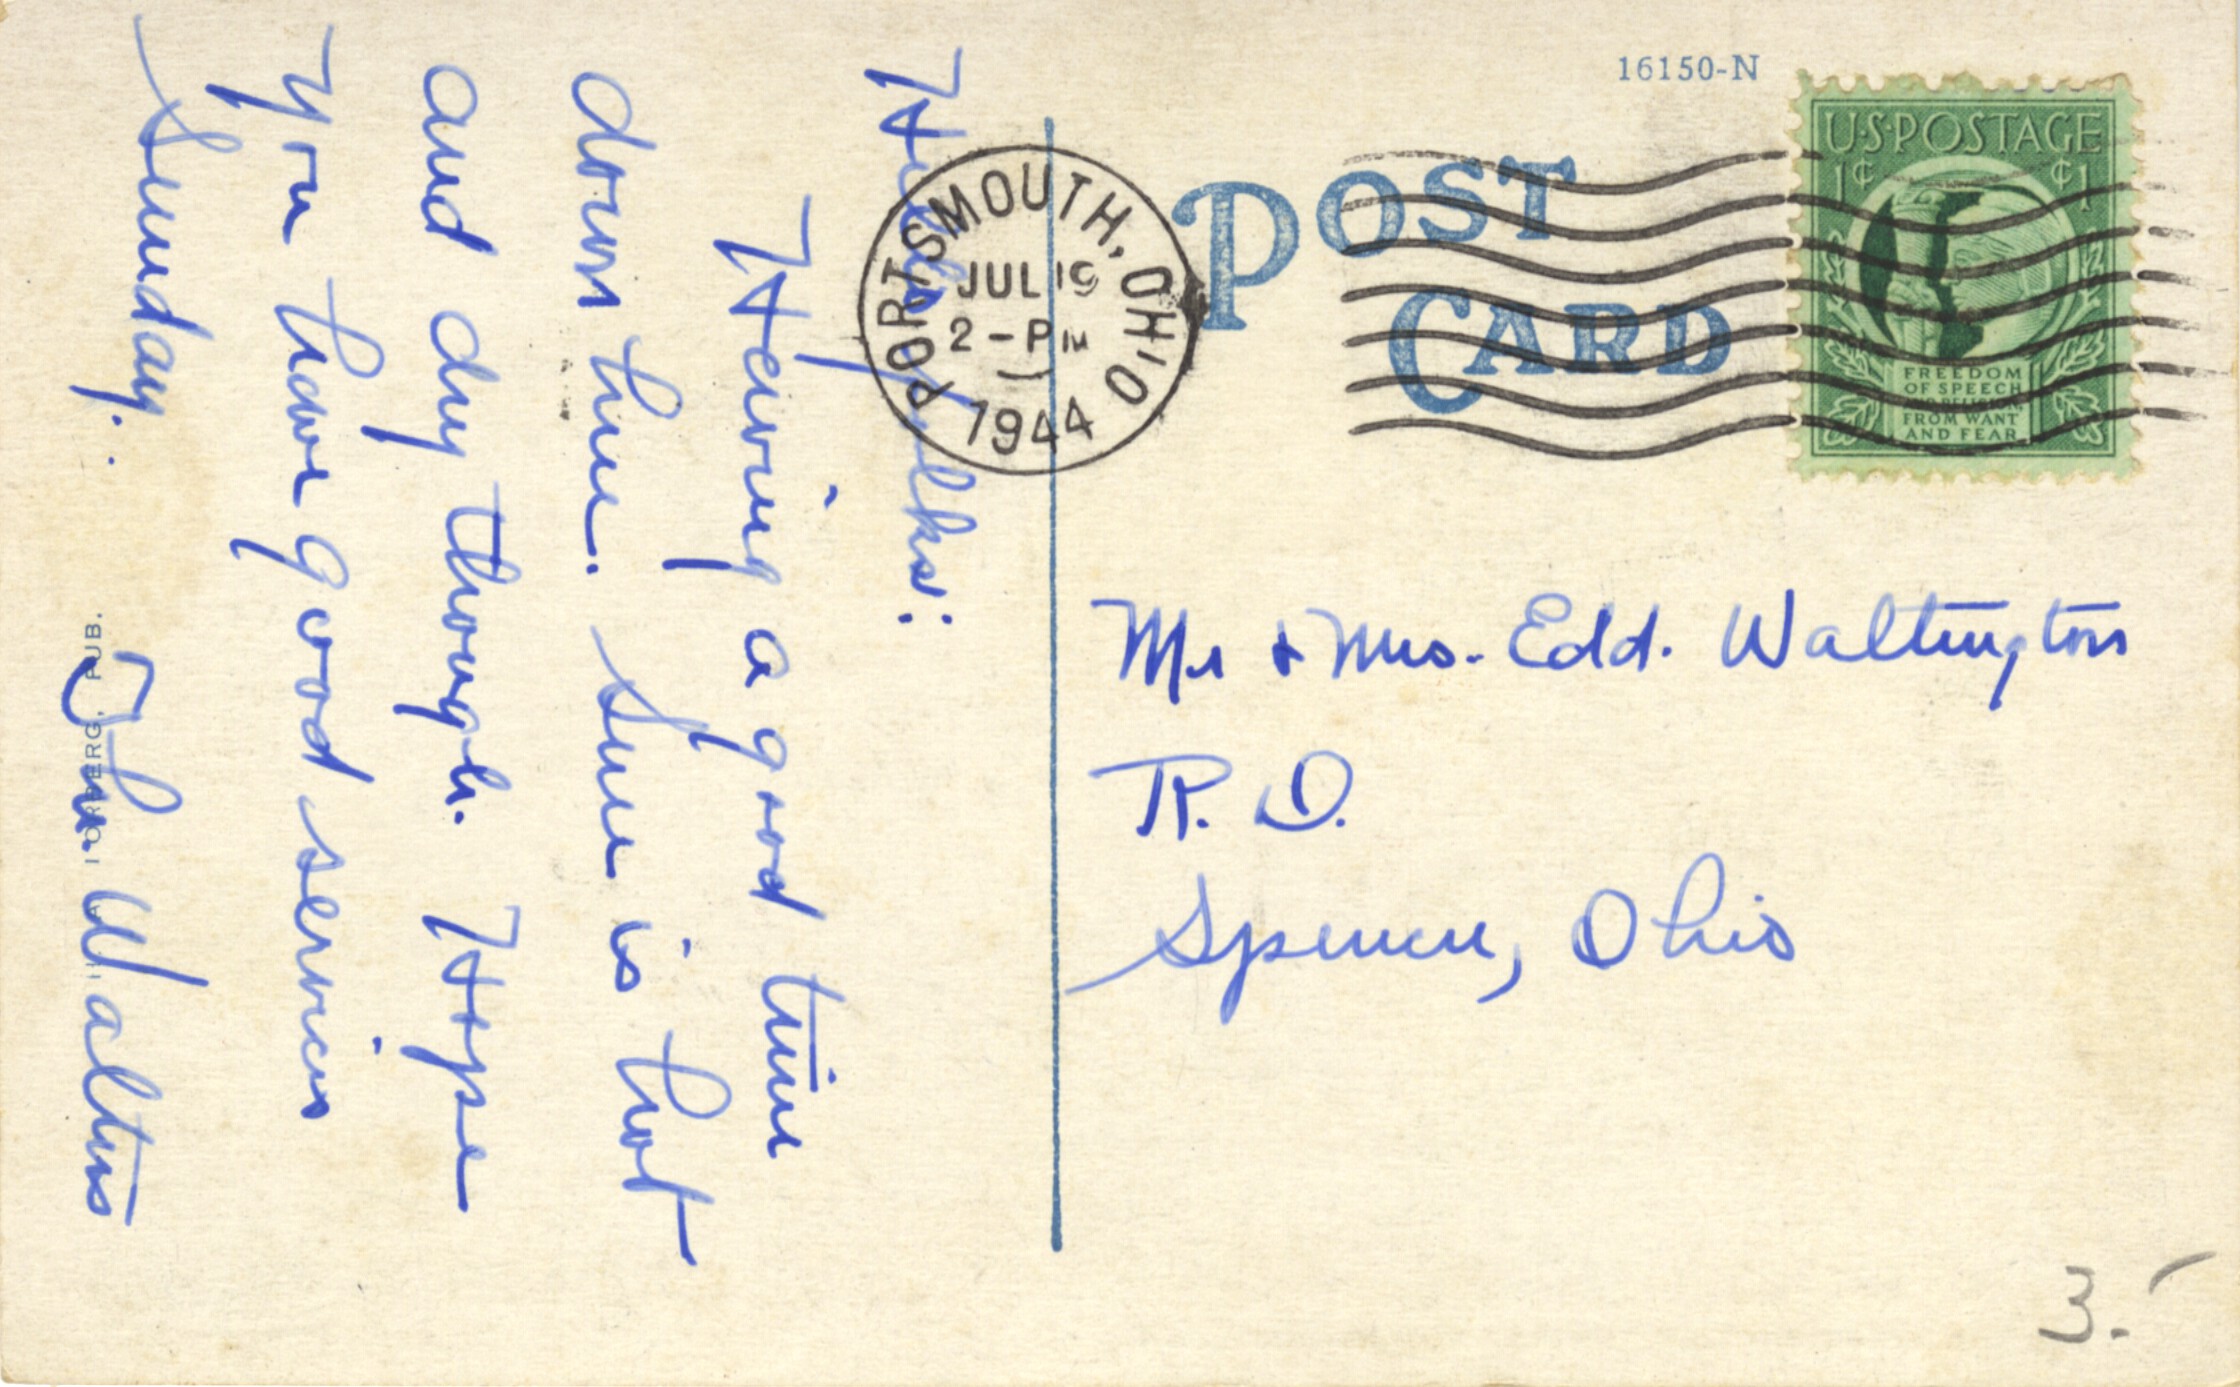 16150-N
U·S·POSTAGE
1¢ ¢1
FREEDOM
OF SPEECH
FROM WANT
AND FEAR
POST
CARD
PORTSMOUTH, OHIO
JUL 19
2-PM
1944
Hello folks:
Having a good time
down here. Sure is hot
and dry though. Hope
you have good services
Sunday.
The Walters
Mr & Mrs. Edd. Waltington
R. D.
Spencer, Ohio
PUB.
3.